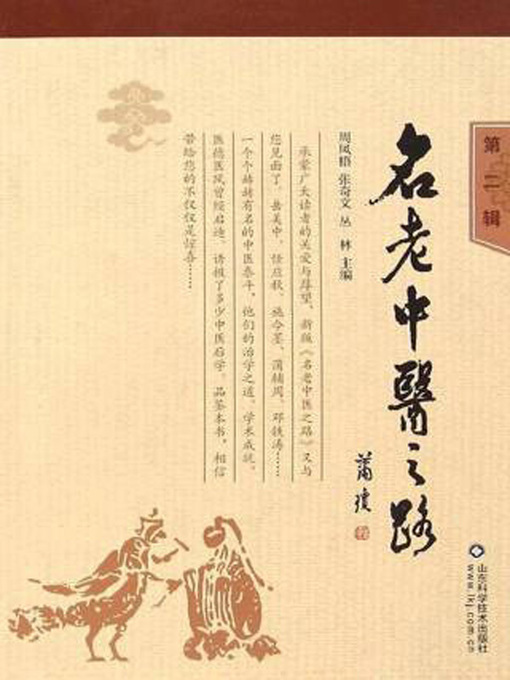 第二辑
名老中醫之路
周凤梧 张奇文 丛 林 主编
承蒙广大读者的关爱与厚望，新版《名老中医之路》又与
您见面了。岳美中、任应秋、施今墨、蒲辅周、邓铁涛……
一个个赫赫有名的中医泰斗，他们的治学之道、学术成就、
医德医风曾经启迪、诱掖了多少中医后学。品鉴本书，相信
带给您的不仅仅是惊喜……
山东科学技术出版社
www.lkj.com.cn